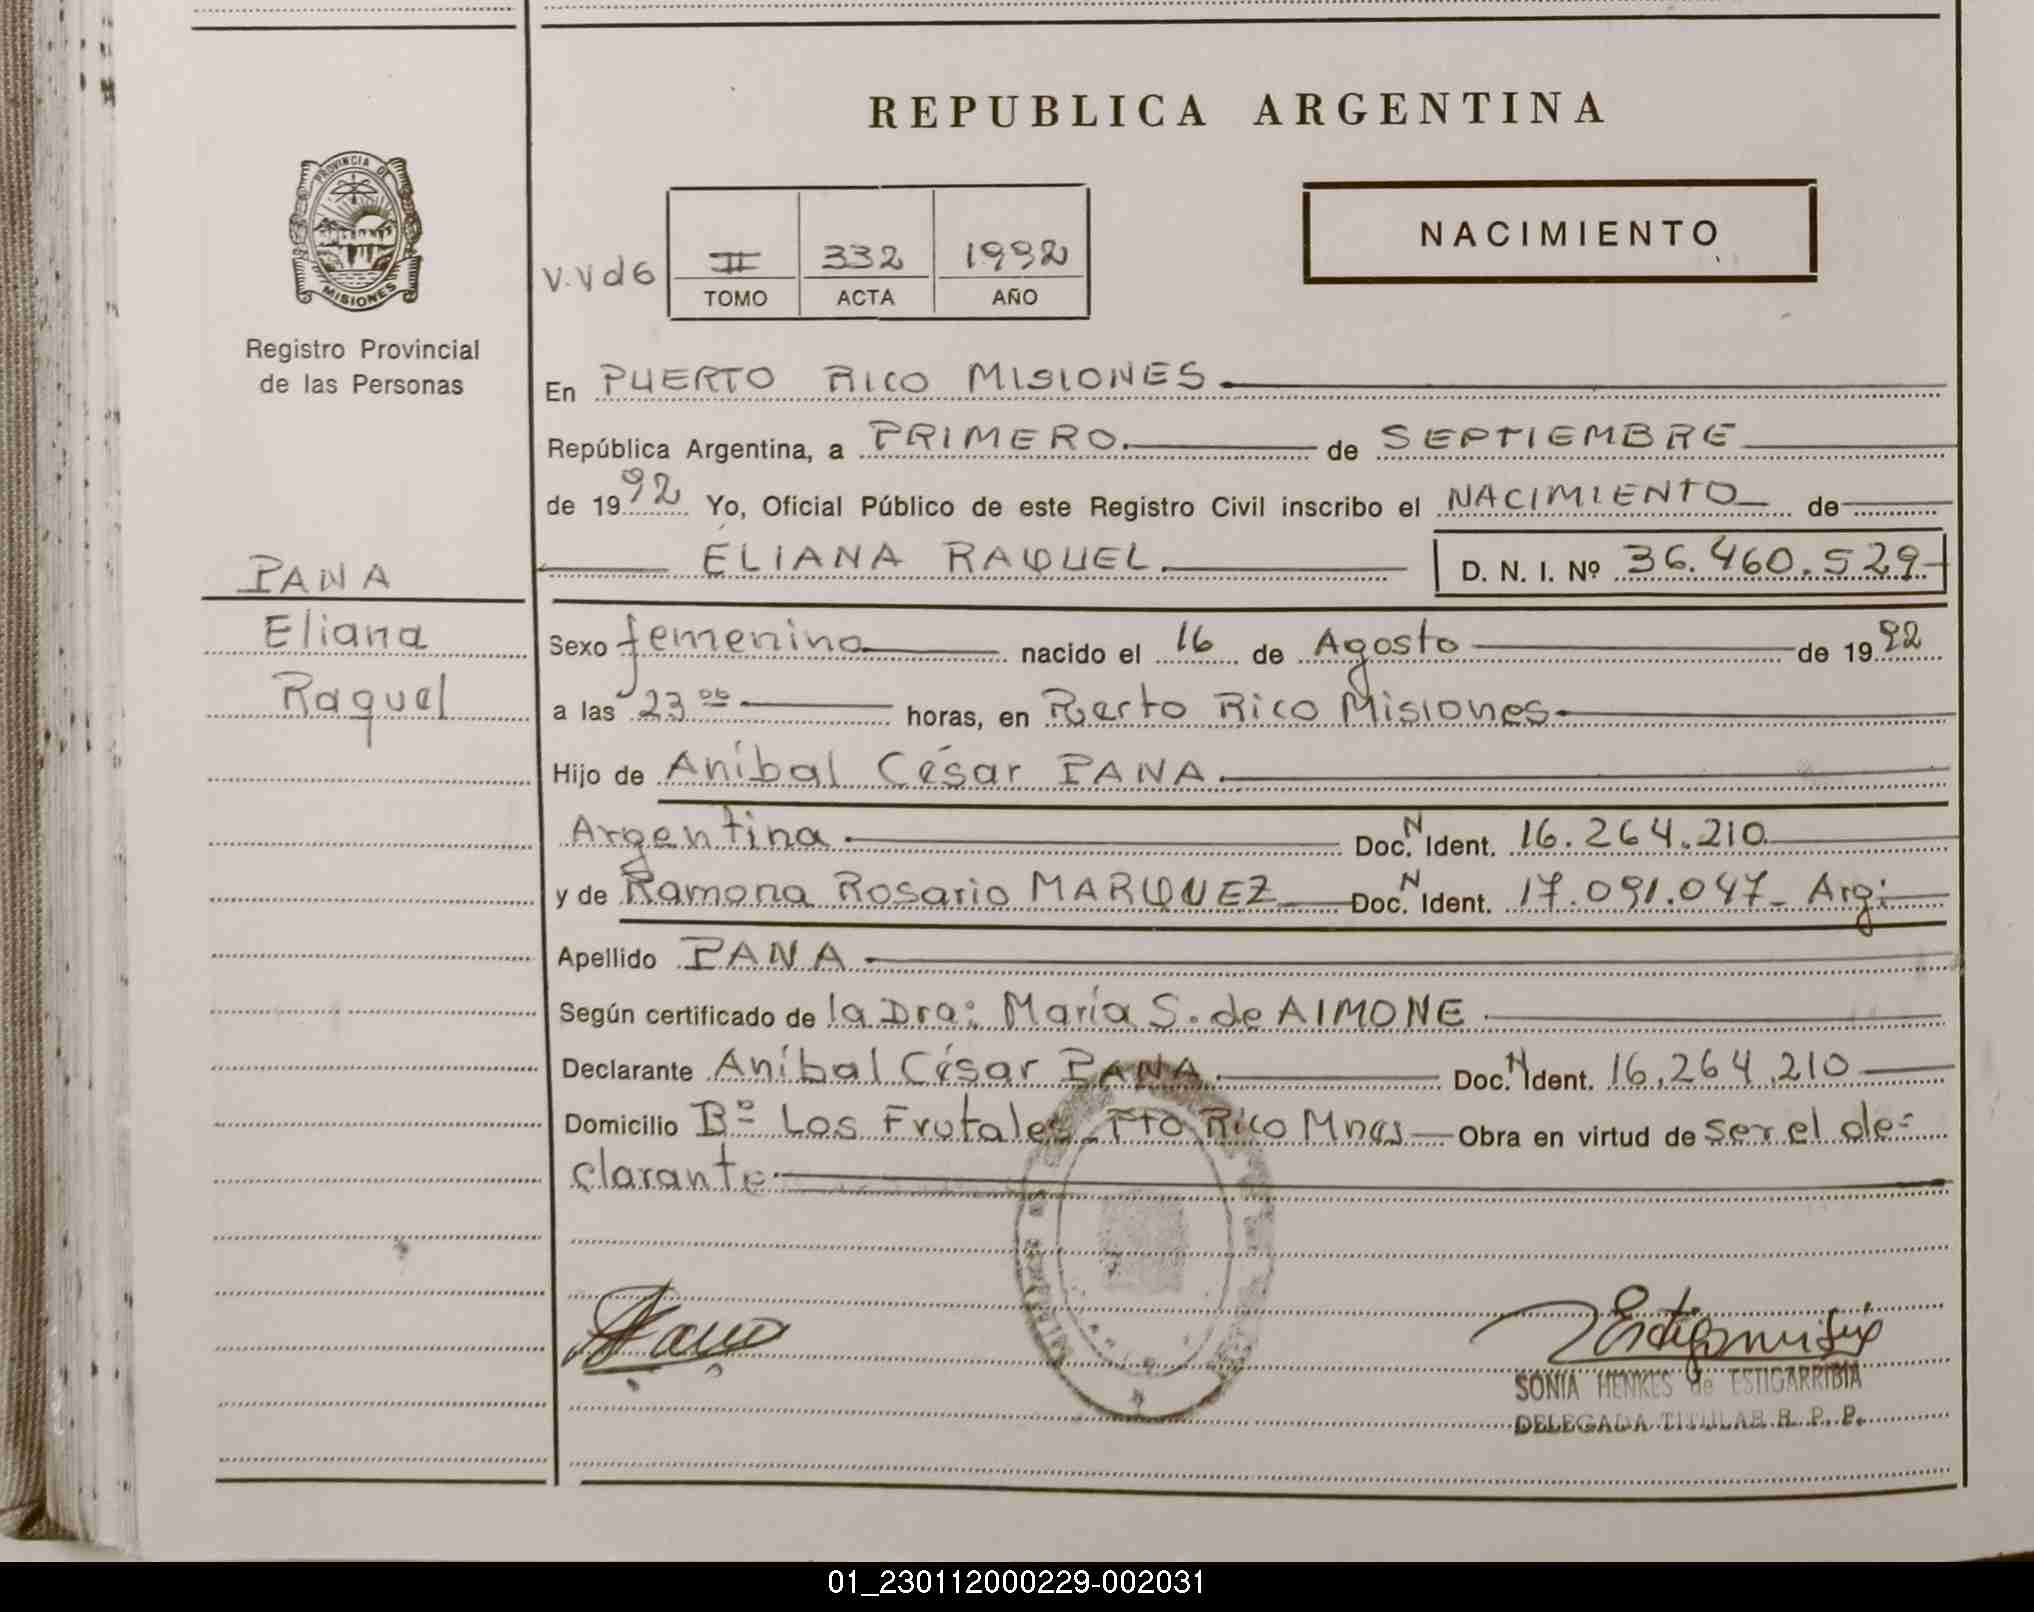 REPUBLICA ARGENTINA
PROVINCIA DE
MISIONES
Registro Provincial
de las Personas
NACIMIENTO
V.Vd6
II 332 1992
TOMO ACTA AÑO
En PUERTO RICO MISIONES
República Argentina, a PRIMERO de SEPTIEMBRE
de 1992 Yo, Oficial Público de este Registro Civil inscribo el NACIMIENTO de
ELIANA RAQUEL. D. N. I. Nº 36.460.529
PANA
Eliana
Raquel
Sexo femenino nacido el 16 de Agosto de 1992
a las 23 horas, en Puerto Rico Misiones
Hijo de Aníbal César PANA
Argentina Doc. N Ident. 16.264.210
y de Ramona Rosario MARQUEZ Doc. N Ident. 17.091.047 Arg:
Apellido PANA
Según certificado de la Dra: María S. de AIMONE
Declarante Aníbal César PANA Doc. N Ident. 16.264.210
Domicilio Bº Los Frutales Pto Rico Mnes Obra en virtud de ser el de-
clarante
SONIA HENKES de ESTIGARRIBIA
DELEGADA TITULAR R. P. P.
01_230112000229-002031